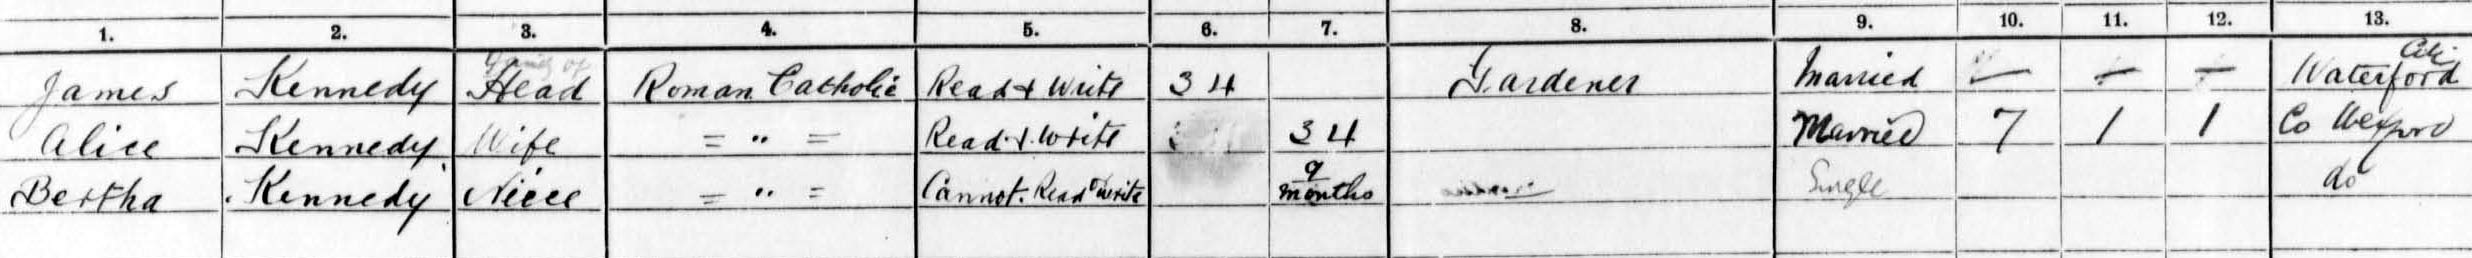 1. 2. 3. 4. 5. 6. 7. 8. 9. 10. 11. 12. 13.
James Kennedy Head Roman Catholic Read & Write 34 Gardener Married — — — Waterford
Alice Kennedy Wife = " = Read & Write 34 Married 7 1 1 Co Wexford
Bertha Kennedy Niece = " = Cannot Read or Write 9 months Single do